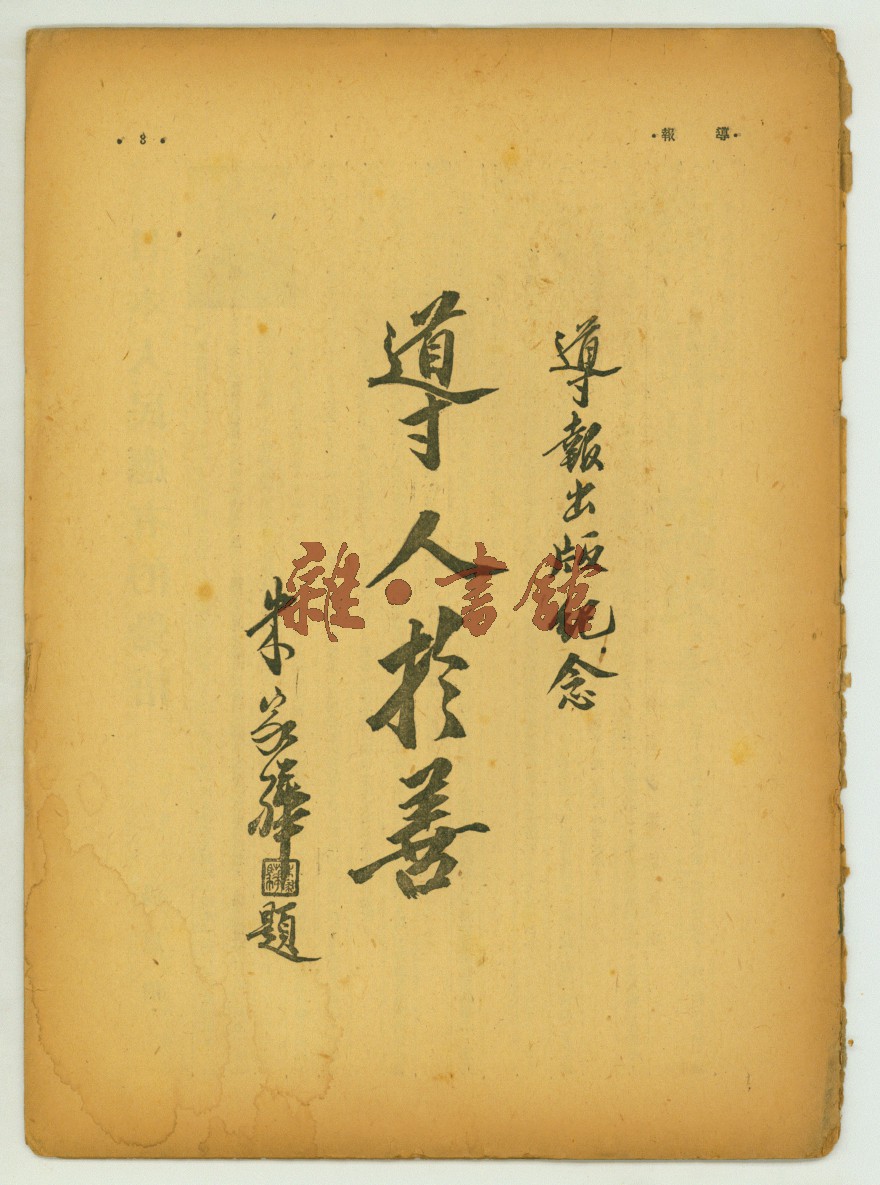 ·導 報·
· 8 ·
導報出版紀念
導人於善
朱家驊題
雜·書館